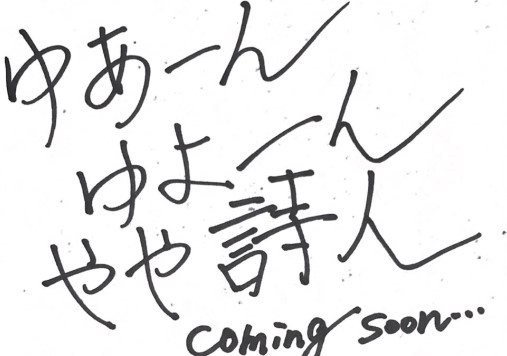 ゆあーん
ゆよーん
やや詩人
coming soon...